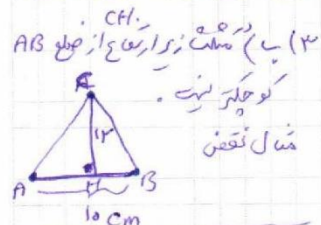 CH.
۳) ب) مثلث زیر ارتفاع از ضلع AB
کوچکتر نیست.
مثال نقض
C
۱۲
A H B
10 cm